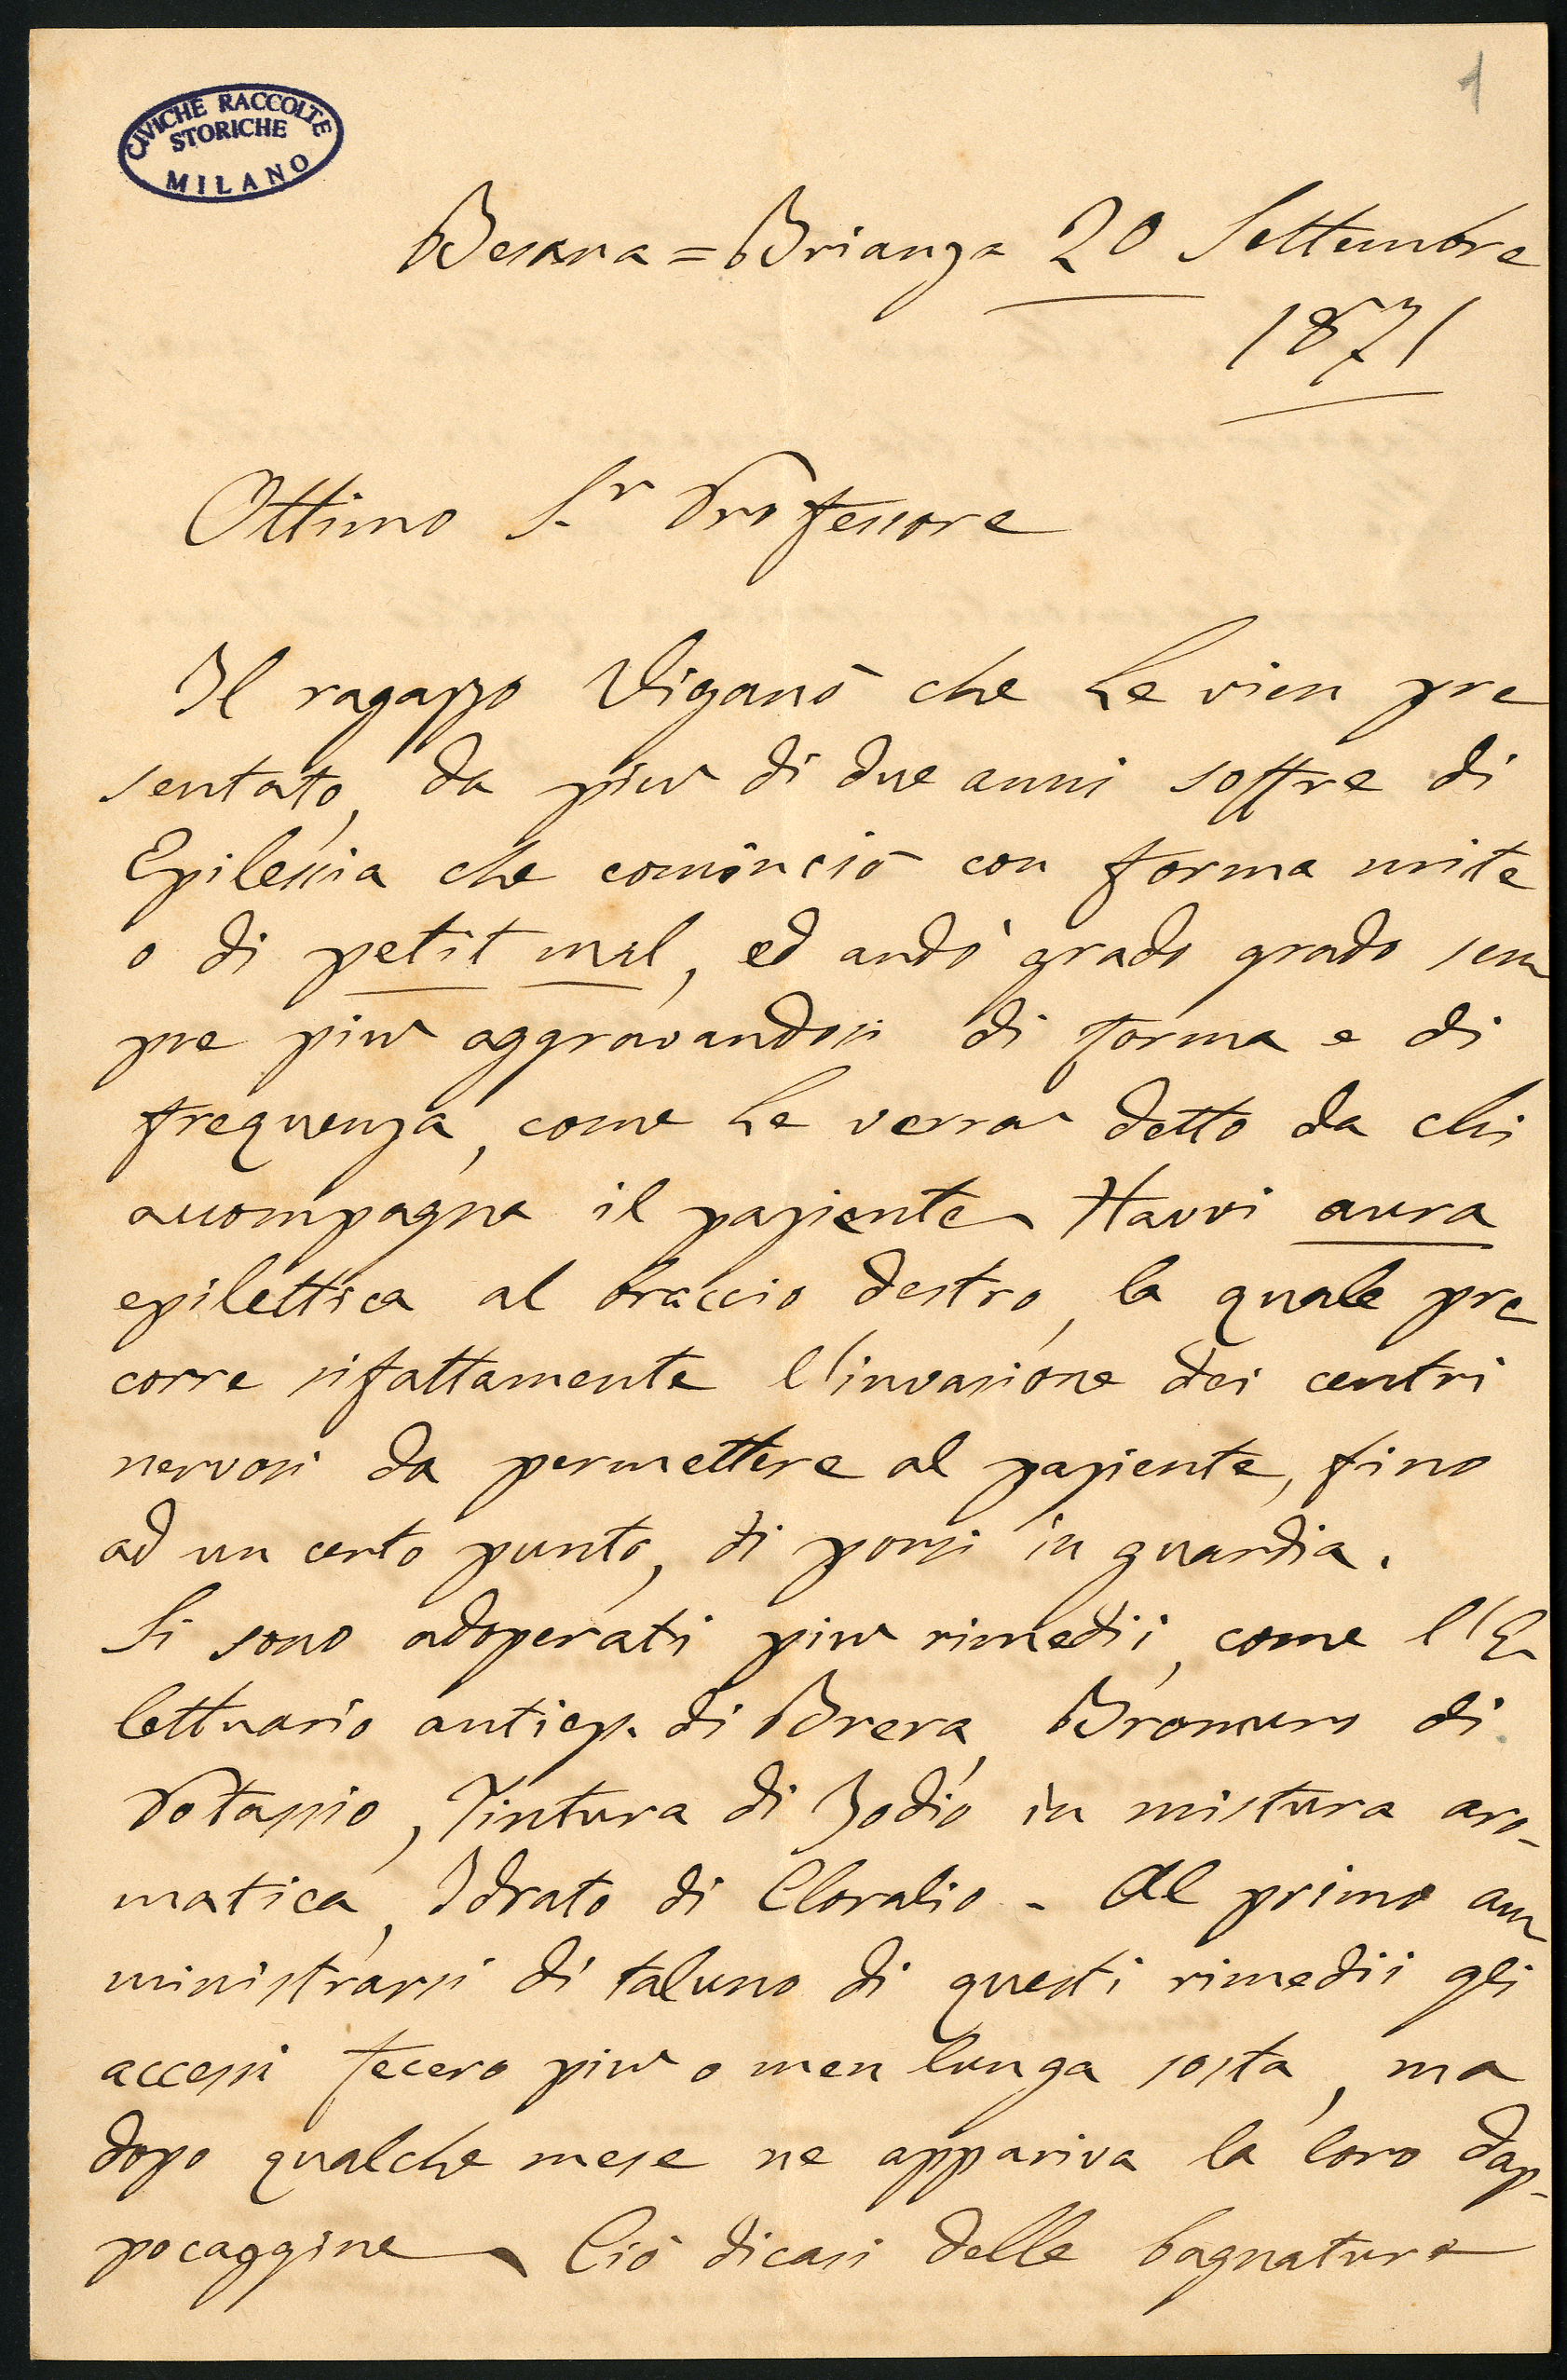 1
CIVICHE RACCOLTE
STORICHE
MILANO
Besana = Brianza 20 Settembre
1871
Ottimo S.r Professore
Il ragazzo Viganò che Le vien pre
sentato, da più di due anni soffre di
Epilessia che cominciò con forma mite
o di petit mal, ed andò grado grado sem
pre più aggravandosi di forma e di
frequenza, come Le verrà detto da chi
accompagna il paziente. Havvi aura
epilettica al braccio destro, la quale pre
corre sifattamente l'invasione dei centri
nervosi da permettere al paziente, fino
ad un certo punto, di porsi in guardia.
Si sono adoperati più rimedii, come l'E
lettuario antiep. di Brera, Bromuro di
Potassio, Tintura di Jodio in mistura aro-
matica, Idrato di Cloralio - Al primo am
ministrarsi di taluno di questi rimedii gli
accessi fecero più o men lunga sosta, ma
dopo qualche mese ne appariva la loro dap-
pocaggine - Ciò dicasi delle bagnature